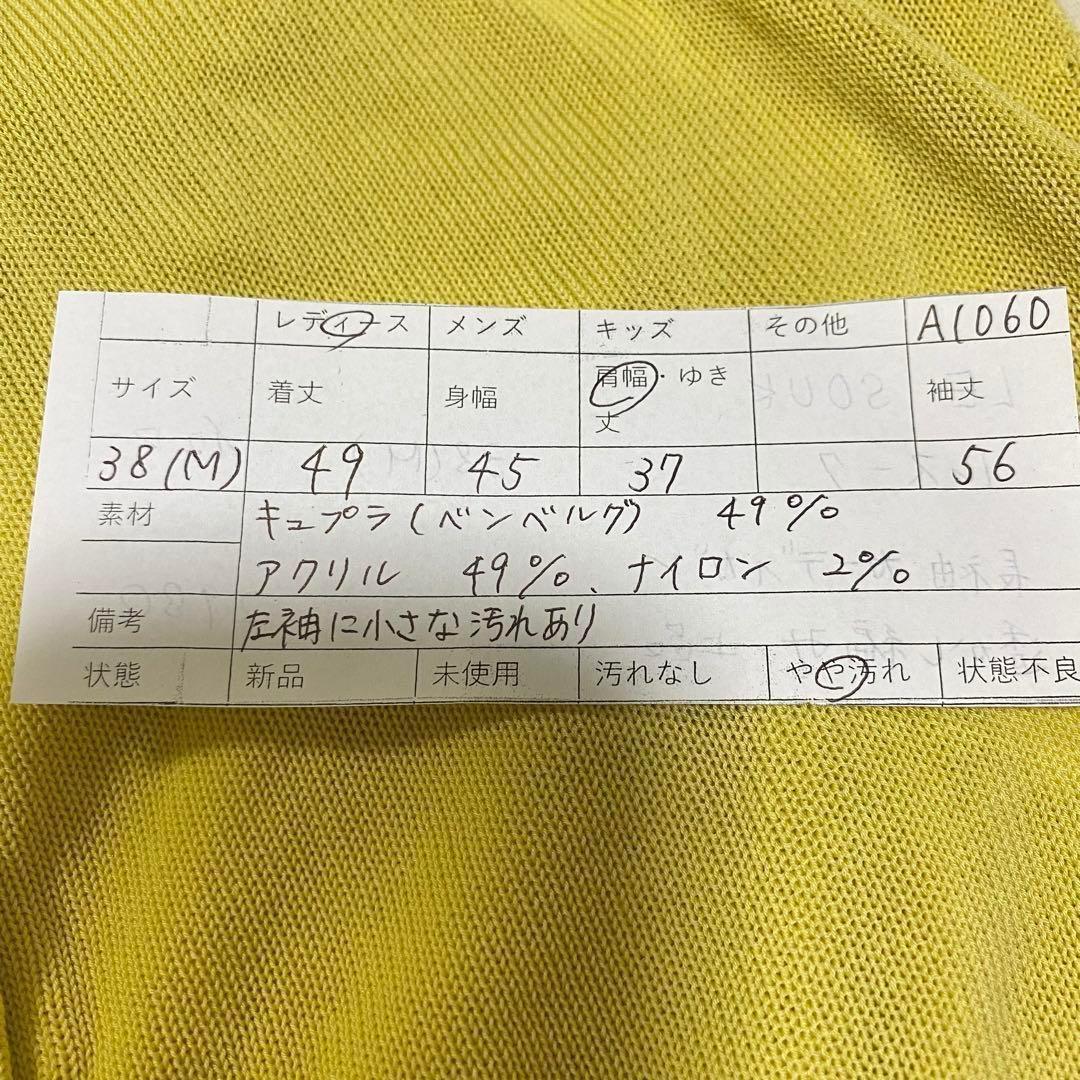 レディース メンズ キッズ その他 A1060
サイズ 着丈 身幅 肩幅・ゆき丈 袖丈
38(M) 49 45 37 56
素材 キュプラ(ベンベルグ) 49%
アクリル 49%、ナイロン 2%
備考 左袖に小さな汚れあり
状態 新品 未使用 汚れなし やや汚れ 状態不良